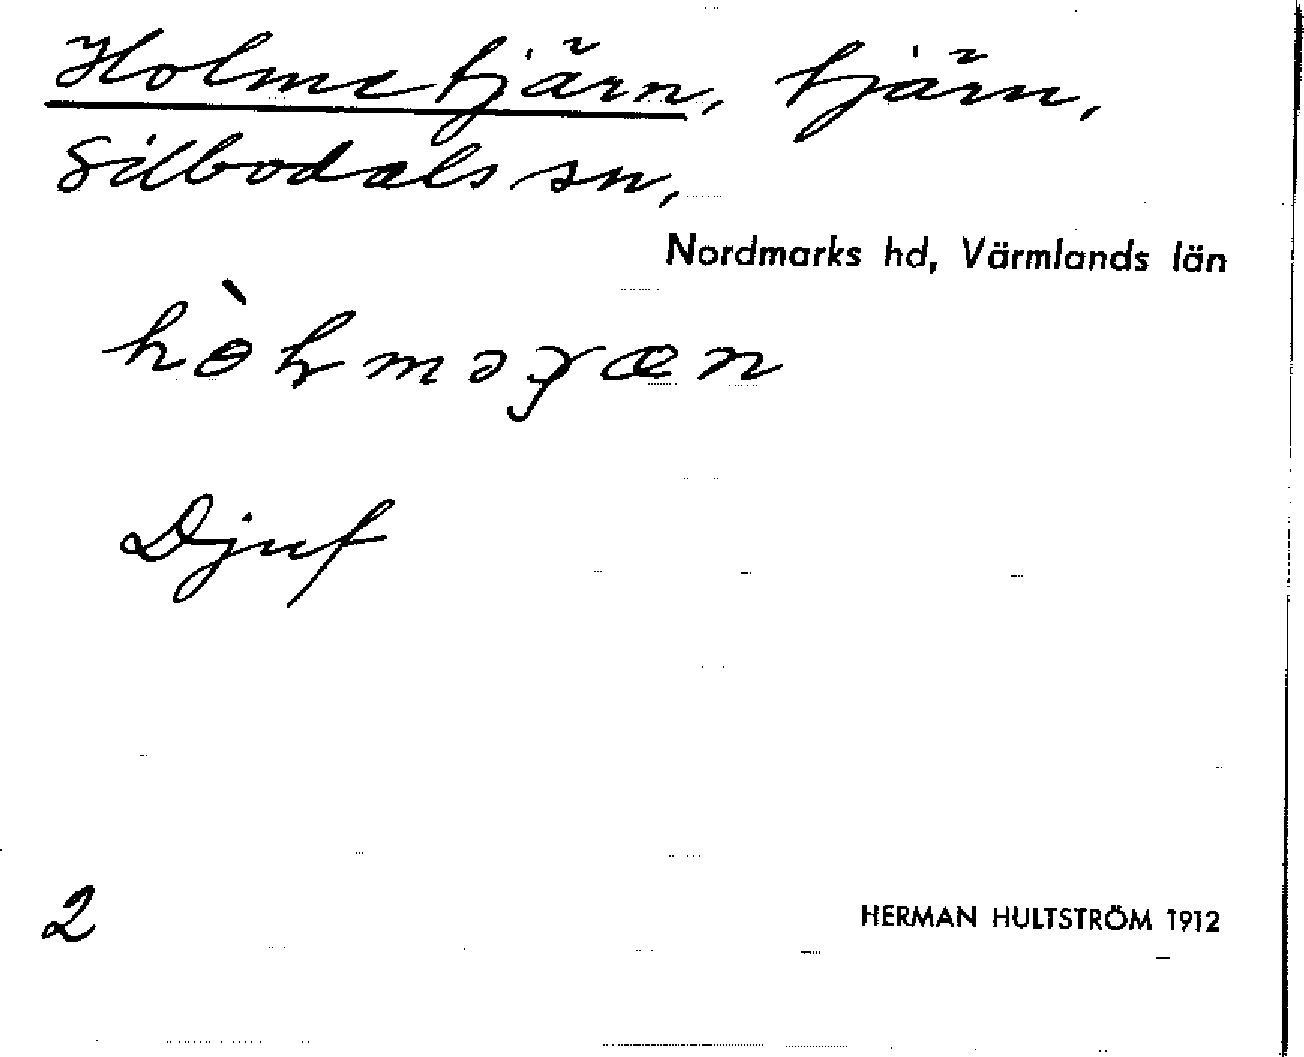 Holmetjärn, tjärn,
Silbodals sn,
Nordmarks hd, Värmlands län
Djuf
2
HERMAN HULTSTRÖM 1912